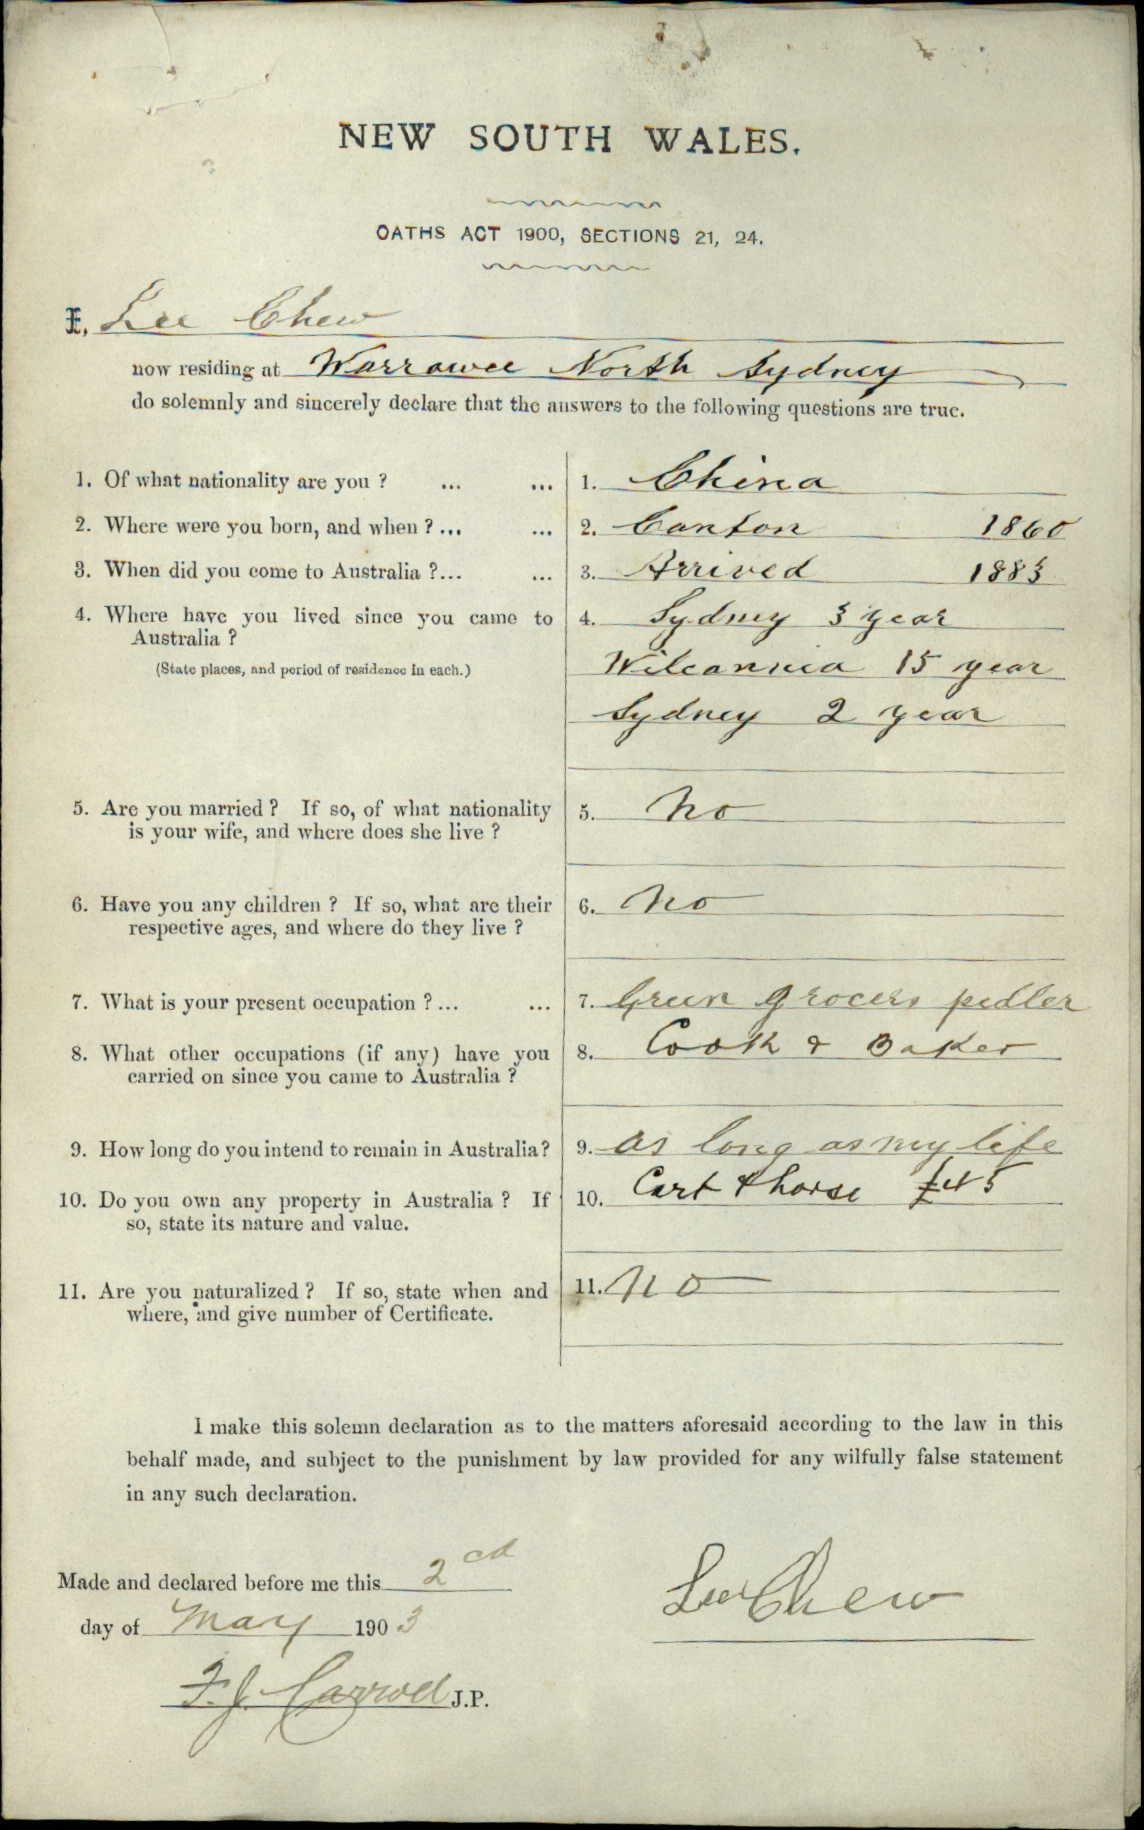 NEW SOUTH WALES.
OATHS ACT 1900, SECTIONS 21, 24.
I, Lee Chew
now residing at Warrawee North Sydney
do solemnly and sincerely declare that the answers to the following questions are true.
1. Of what nationality are you ? ... ... 1. China
2. Where were you born, and when ? ... ... 2. Canton 1860
3. When did you come to Australia ?... ... 3. Arrived 1883
4. Where have you lived since you came to 4. Sydney 3 year
Australia ?
(State places, and period of residence in each.) Wilcannia 15 year
Sydney 2 year
5. Are you married ? If so, of what nationality 5. No
is your wife, and where does she live ?
6. Have you any children ? If so, what are their 6. No
respective ages, and where do they live ?
7. What is your present occupation ? ... ... 7. Green grocers pedler
8. What other occupations (if any) have you 8. Cook & Baker
carried on since you came to Australia ?
9. How long do you intend to remain in Australia? 9. as long as my life
10. Do you own any property in Australia ? If 10. Cart & horse £45
so, state its nature and value.
11. Are you naturalized ? If so, state when and 11. No
where, and give number of Certificate.
I make this solemn declaration as to the matters aforesaid according to the law in this
behalf made, and subject to the punishment by law provided for any wilfully false statement
in any such declaration.
Made and declared before me this 2cd
day of May 1903
Lee Chew
F. J. J.P.